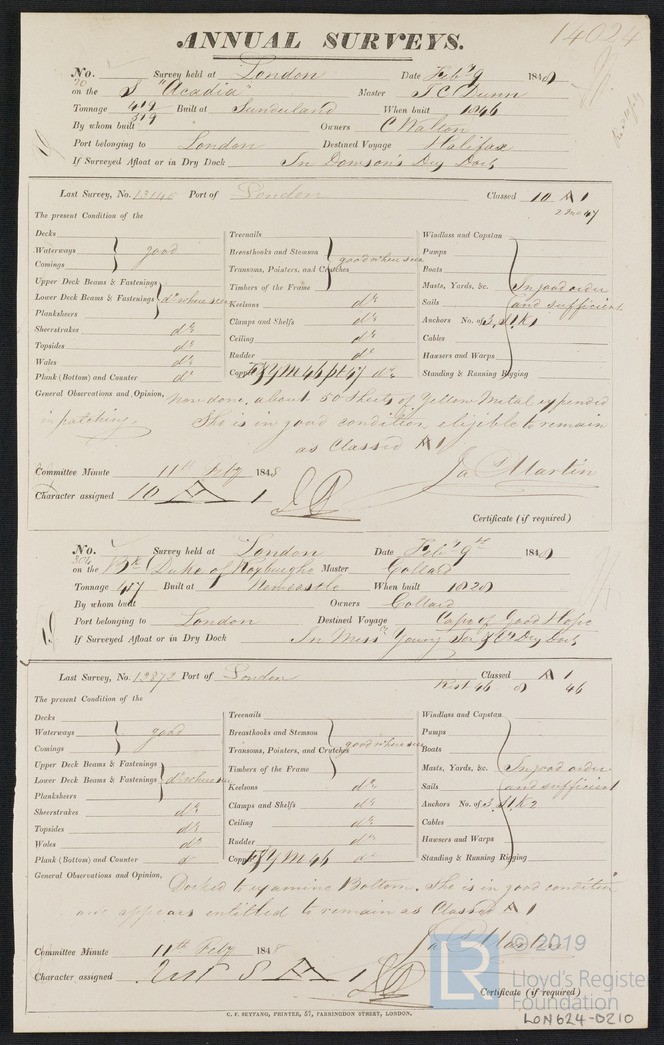 14024
ANNUAL SURVEYS.
No. 70 Survey held at London Date Feby 9 1848
on the S "Acadia" Master J C Dunn
Tonnage 419 319 Built at Sunderland When built 1846
By whom built Owners C Walton
Port belonging to London Destined Voyage Halifax
If Surveyed Afloat or in Dry Dock In Dowson's Dry Dock
Last Survey, No. 13140 Port of London Classed 10 A 1
47
The present Condition of the
Decks
Waterways
Comings
good
Upper Deck Beams & Fastenings
Lower Deck Beams & Fastenings
Planksheers
do where seen
Sheerstrakes do
Topsides do
Wales do
Plank (Bottom) and Counter do
Treenails
Breasthooks and Stemson
Transoms, Pointers, and Crutches
Timbers of the Frame
good where seen
Keelsons do
Clamps and Shelfs do
Ceiling do
Rudder do
Copper F Y M 46 pt 47 do
Windlass and Capstan
Pumps
Boats
Masts, Yards, &c. In good order
Sails and sufficient
Anchors No. of 3, S1, K1
Cables
Hawsers and Warps
Standing & Running Rigging
General Observations and Opinion, Now done, about 50 sheets of Yellow Metal expended
in patching.
She is in good condition, eligible to remain
as Classed A 1
Committee Minute 11th Feby 1848
Jas Martin
Character assigned 10 A 1
Certificate (if required)
No. 304 Survey held at London Date Feby 9th 1848
on the Bk Duke of Roxburghe Master Collard
Tonnage 417 Built at Newcastle When built 1828
By whom built Owners Collard
Port belonging to London Destined Voyage Cape of Good Hope
If Surveyed Afloat or in Dry Dock In Messrs Young Son & Co Dry Dock
Last Survey, No. 12872 Port of London Classed A 1
Rest 46 8 46
The present Condition of the
Decks
Waterways
Comings
good
Upper Deck Beams & Fastenings
Lower Deck Beams & Fastenings
Planksheers
do where seen
Sheerstrakes do
Topsides do
Wales do
Plank (Bottom) and Counter do
Treenails
Breasthooks and Stemson
Transoms, Pointers, and Crutches
Timbers of the Frame
good where seen
Keelsons do
Clamps and Shelfs do
Ceiling do
Rudder do
Copper F Y M 46 do
Windlass and Capstan
Pumps
Boats
Masts, Yards, &c. In good order
Sails and sufficient
Anchors No. of 3, S1, K2
Cables
Hawsers and Warps
Standing & Running Rigging
General Observations and Opinion, Docked to examine Bottom. She is in good condition
and appears entitled to remain as Classed A 1
Jas Martin
Committee Minute 11th Feby 1848
Character assigned Rest 8 A 1
Certificate (if required)
C. F. SEYFANG, PRINTER, 57, FARRINGDON STREET, LONDON.
LR © 2019
Lloyd's Register
Foundation
LON624-0210